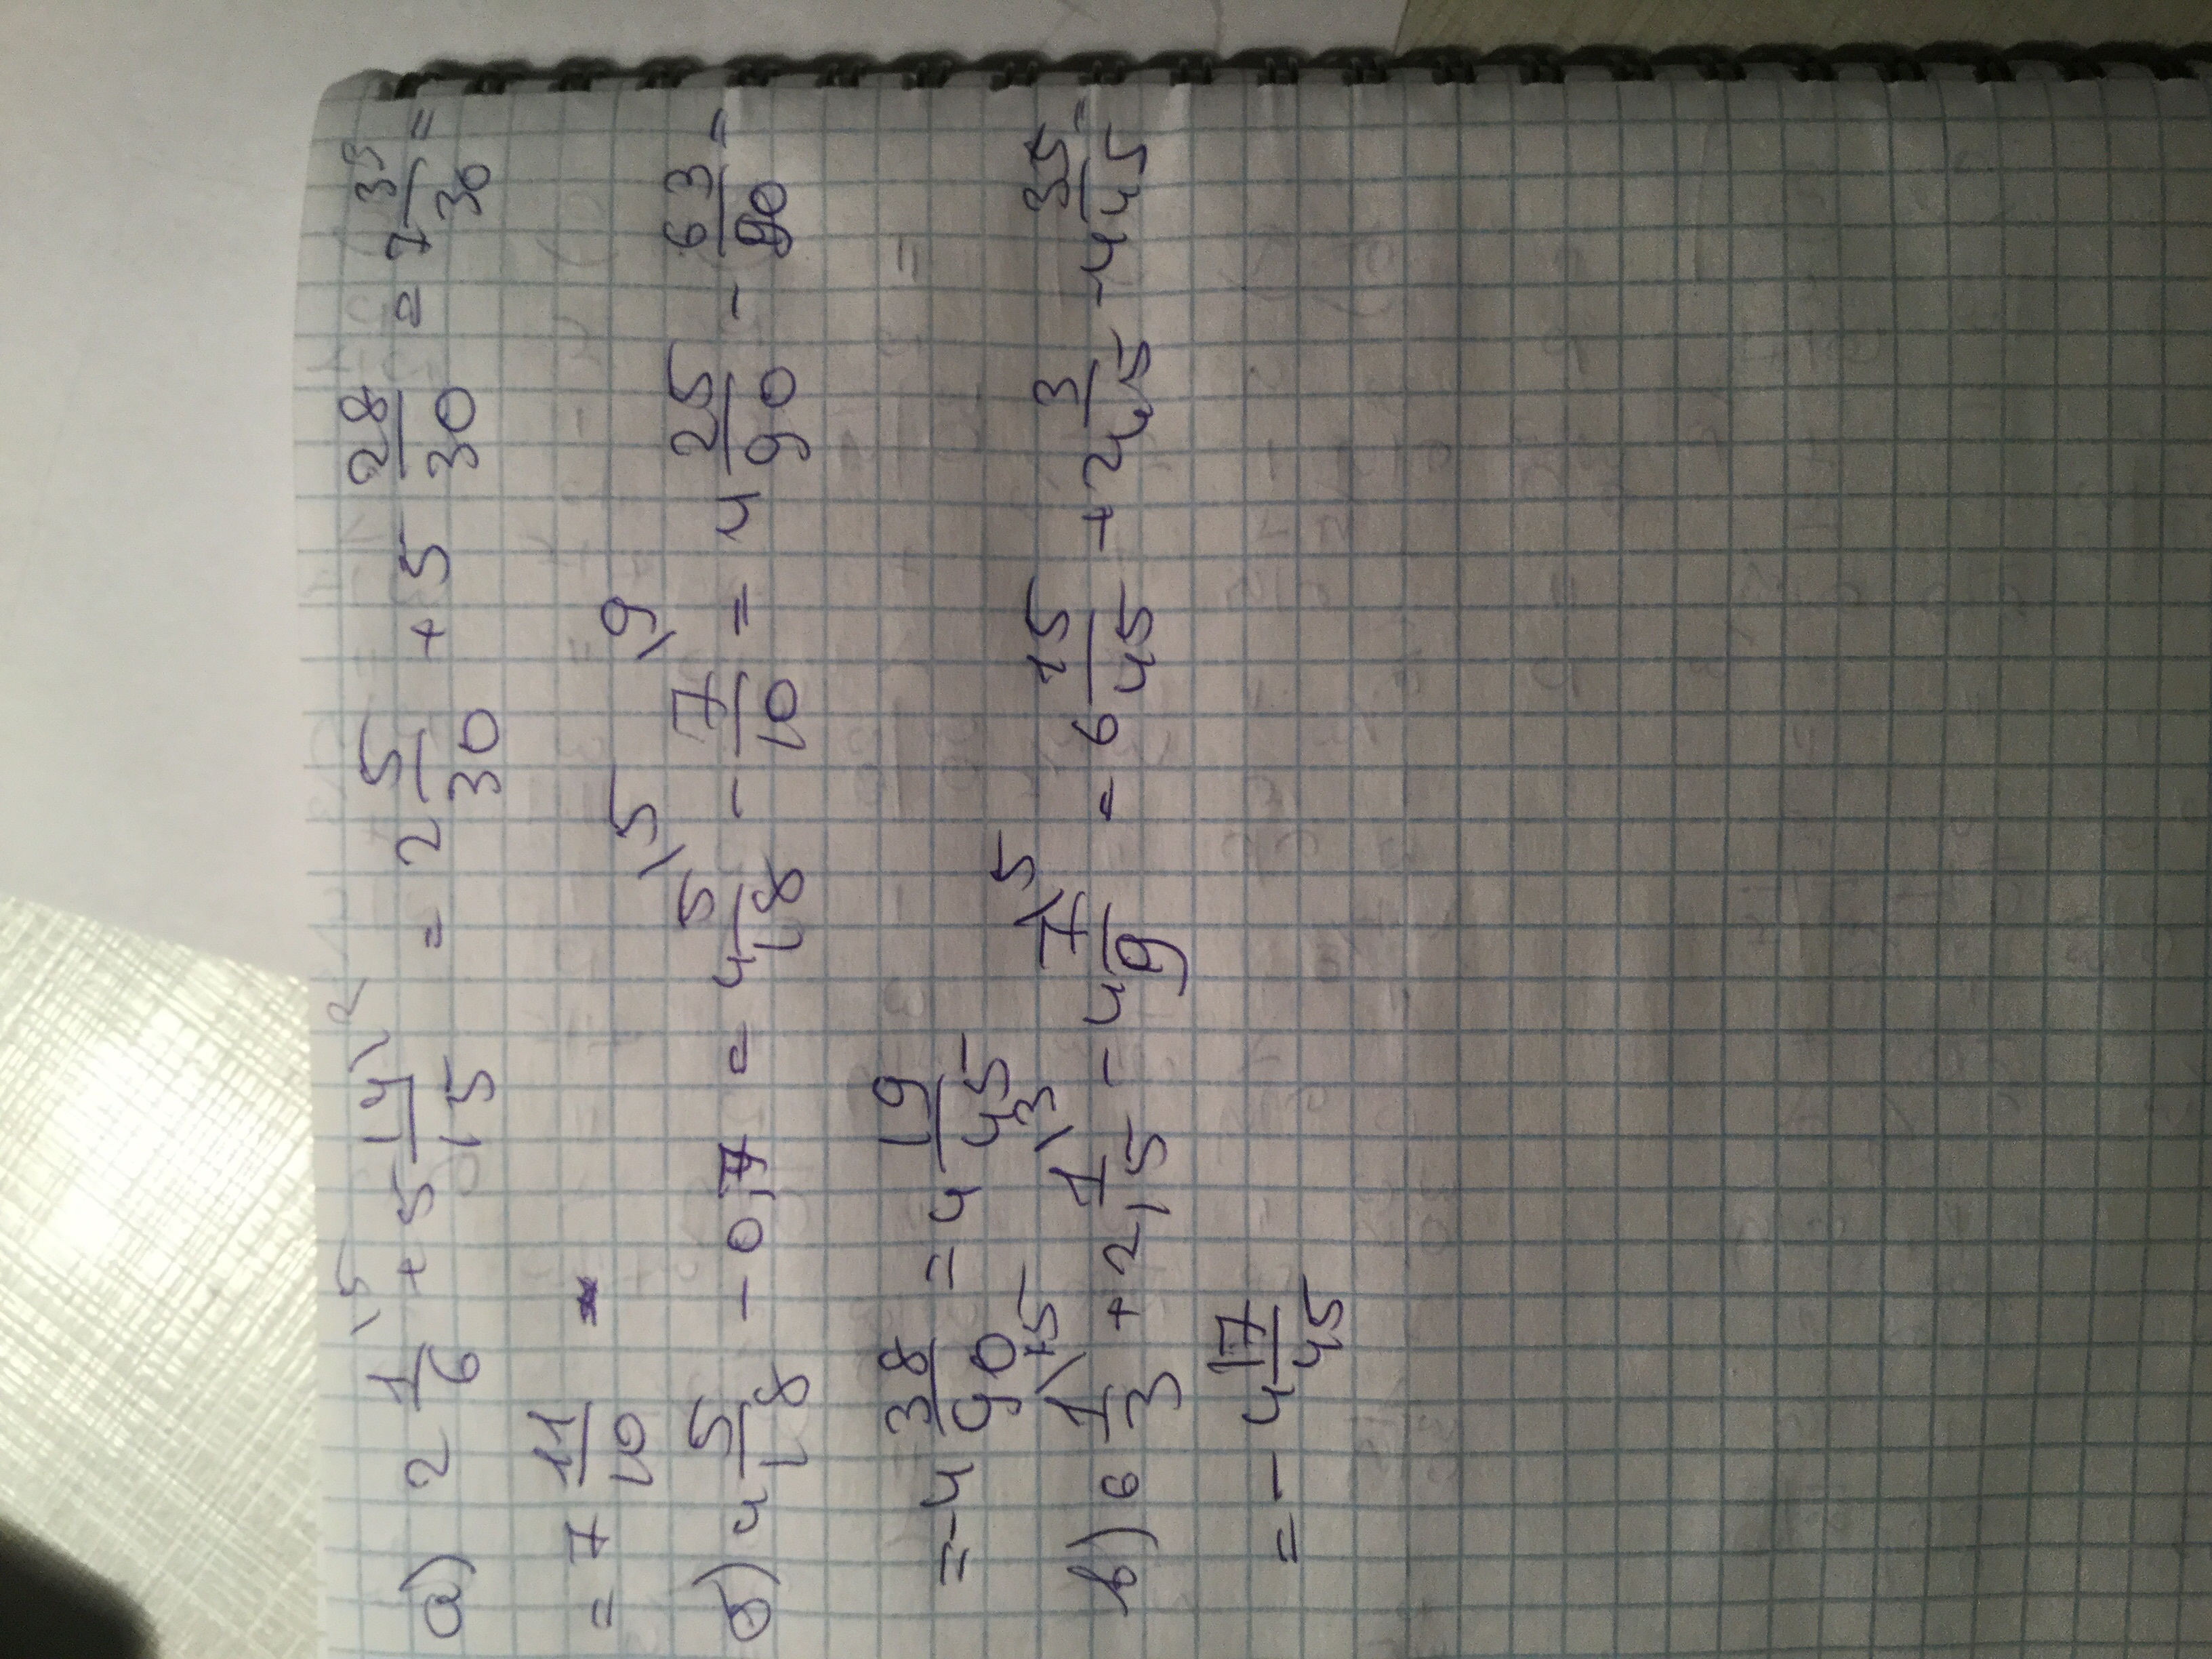 а) 2 1/6 \5 + 5 14/15 \2 = 2 5/30 + 5 28/30 = 7 33/30 =
= 7 11/10
б) 4 5/18 - 0,7 = 4 5/18 \5 - 7/10 \9 = 4 25/90 - 63/90 =
= -4 38/90 = 4 19/45
в) 6 1/3 \15 + 2 1/15 \3 - 4 7/9 \5 = 6 15/45 + 2 3/45 - 4 35/45 =
= - 4 17/45